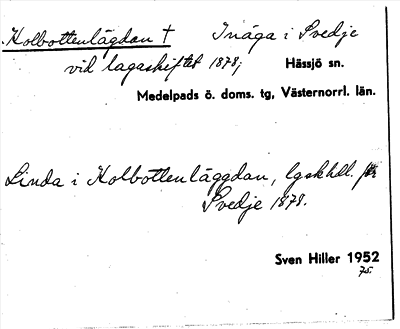 Kolbottenlägdan † Inäga i Svedje
vid lagaskiftet 1878; Hässjö sn.
Medelpads ö. doms. tg, Västernorrl. län.
Linda i Kolbottenläggdan, lgskhdl. för
Svedje 1878.
Sven Hiller 1952
75.